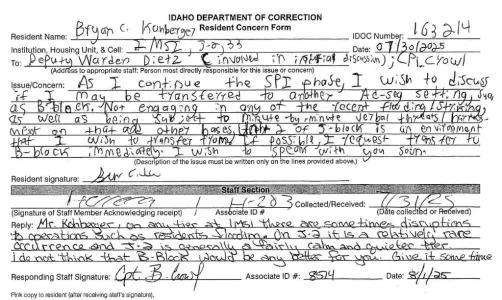 IDAHO DEPARTMENT OF CORRECTION
Resident Concern Form
Resident Name: Bryan C. Kohberger IDOC Number: 163214
Institution, Housing Unit, & Cell: IMSI, J-2, 33 Date: 07/30/2025
To: Deputy Warden Dietz (involved in initial discussion); CPL. Crowl
(Address to appropriate staff: Person most directly responsible for this issue or concern)
Issue/Concern: As I continue the SPI phase, I wish to discuss
if I may be transferred to another Ad-seg setting, such
as B-block. Not engaging in any of the recent flooding/striking
as well as being subject to minute-by-minute verbal threats/harass-
ment on that and other bases, Unit 2 of J-block is an environment
that I wish to transfer from. If possible, I request transfer to
B-block immediately. I wish to speak with you soon.
(Description of the issue must be written only on the lines provided above.)
Resident signature:
Staff Section
H-203 Collected/Received: 7/31/25
(Signature of Staff Member Acknowledging receipt) Associate ID # (Date collected or Received)
Reply: Mr. Kohberger on any tier at IMSI there are sometimes disruptions
to operations such as residents flooding. On J-2 it is a relatively rare
occurrence and J-2 is generally a fairly calm and quieter tier
I do not think that B-Block would be any better for you. Give it some time
Responding Staff Signature: Cpt. B. Crowl Associate ID #: 8514 Date: 8/1/25
Pink copy to resident (after receiving staff's signature),